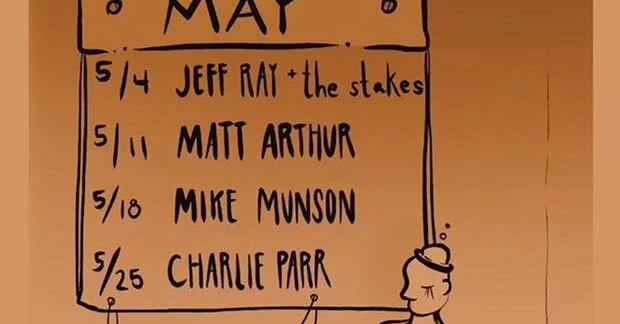 MAY
5/4 JEFF RAY + the stakes
5/11 MATT ARTHUR
5/18 MIKE MUNSON
5/25 CHARLIE PARR